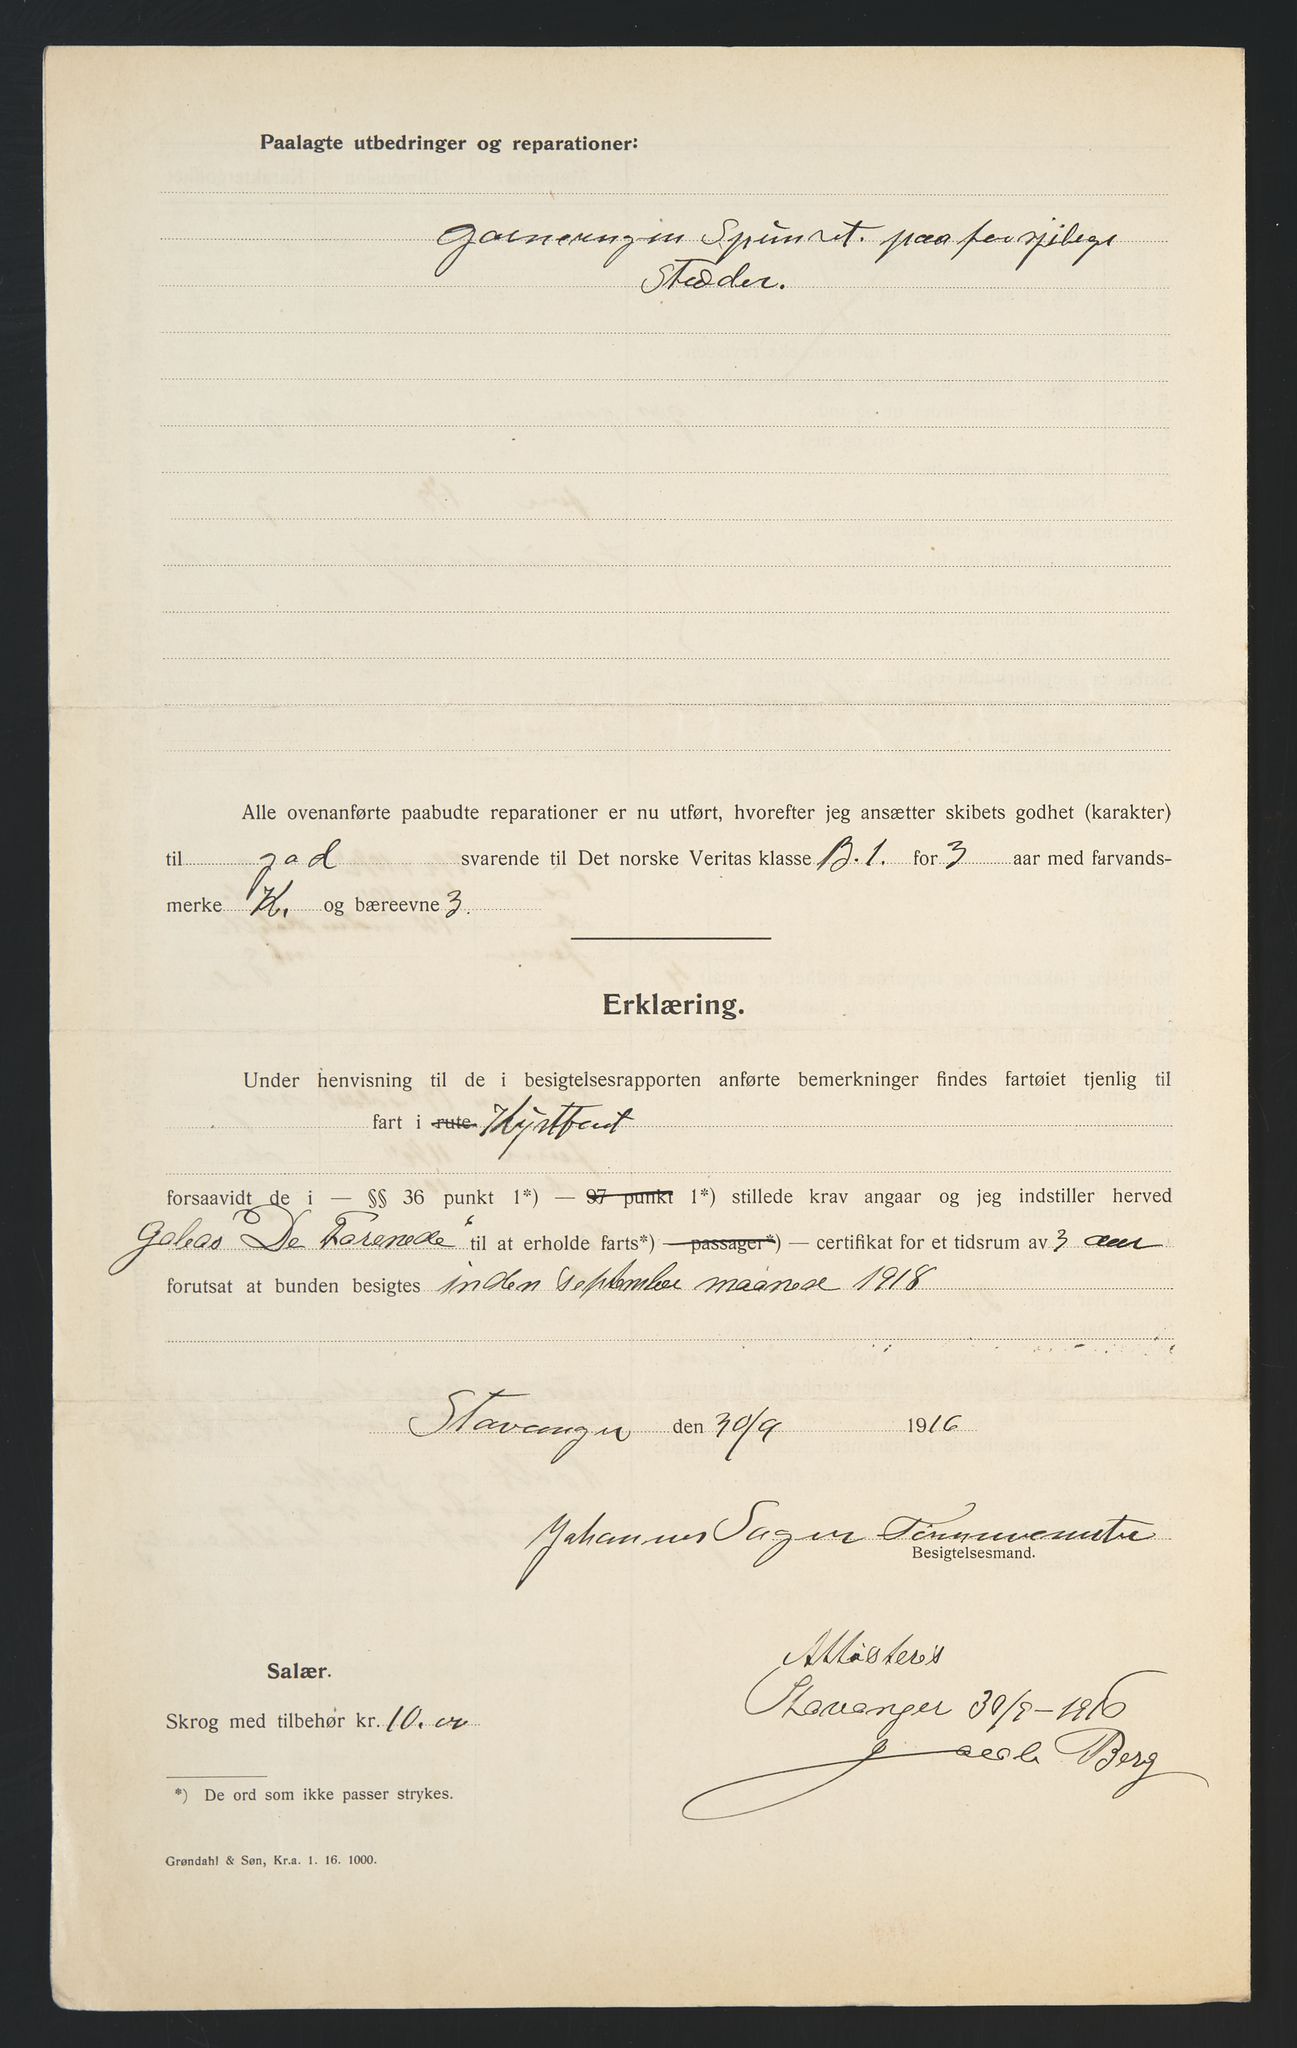 Paalagte utbedringer og reparationer:
Garneringen Spunset. paa forskjelige
Stæder.
Alle ovenanførte paabudte reparationer er nu utført, hvorefter jeg ansætter skibets godhet (karakter)
til god svarende til Det norske Veritas klasse B. 1. for 3 aar med farvands-
merke K. og bæreevne 3.
Erklæring.
Under henvisning til de i besigtelsesrapporten anførte bemerkninger findes fartøiet tjenlig til
fart i rute Kystfart
forsaavidt de i — §§ 36 punkt 1*) — 97 punkt 1*) stillede krav angaar og jeg indstiller herved
Galeas "De Forenede" til at erholde farts*) — passager*) — certifikat for et tidsrum av 3 aar
forutsat at bunden besigtes inden September maaned 1918
Stavanger den 30/9 1916
Johannes Tømmermester
Besigtelsesmand.
Attesteres
Stavanger 30/9-1916
Jacob Berg
Salær.
Skrog med tilbehør kr. 10. 00
*) De ord som ikke passer strykes.
Grøndahl & Søn, Kr.a. 1. 16. 1000.